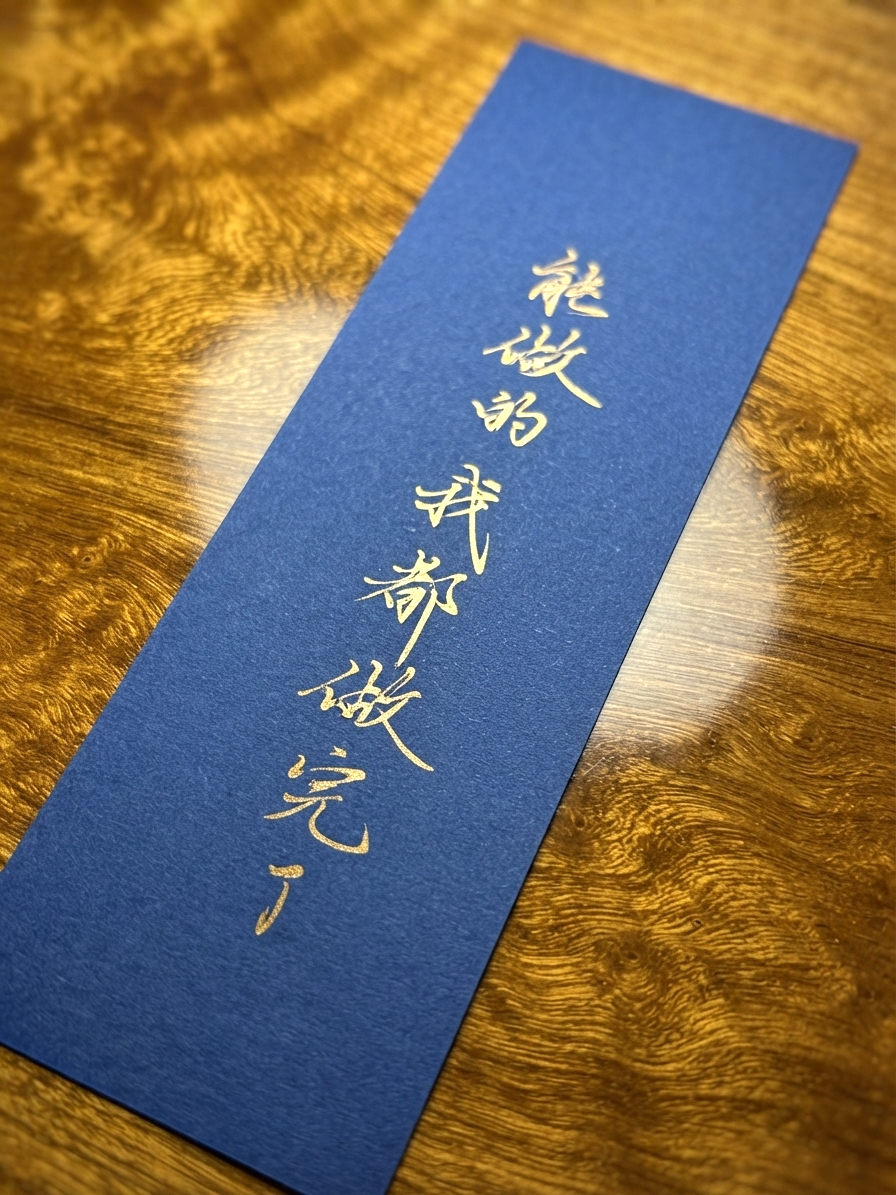 能做的我都做完了